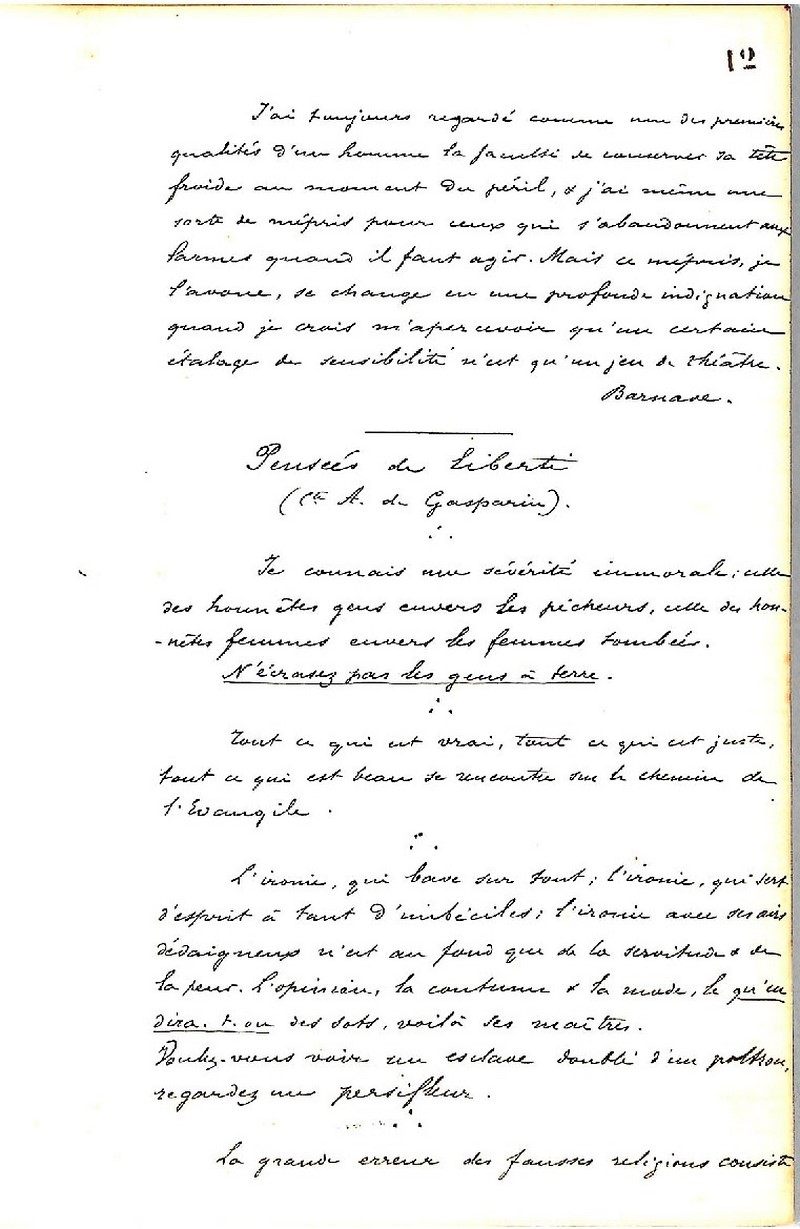 12
J'ai toujours regardé comme une des premières
qualités d'un homme la faculté de conserver sa tête
froide au moment du péril, & j'ai même une
sorte de mépris pour ceux qui s'abandonnent aux
larmes quand il faut agir. Mais ce mépris, je
l'avoue, se change en une profonde indignation
quand je crois m'apercevoir qu'un certain
étalage de sensibilité n'est qu'un jeu de théâtre.
Barnave.
Pensées de Liberté
(Cte A. de Gasparin).
Je connais une sévérité immorale; celle
des honnêtes gens envers les pécheurs, celle des hon-
-nêtes femmes envers les femmes tombées.
N'écrasez pas les gens à terre.
Tout ce qui est vrai, tout ce qui est juste,
tout ce qui est beau se rencontre sur le chemin de
l'Evangile.
L'ironie, qui bave sur tout; l'ironie, qui sert
d'esprit à tant d'imbéciles; l'ironie avec ses airs
dédaigneux n'est au fond que de la servitude & de
la peur. L'opinion, la coutume & la mode, le qu'en
dira-t-on des sots, voilà ses maîtres.
Voulez-vous voir un esclave doublé d'un poltron,
regardez un persifleur.
La grande erreur des fausses religions consiste